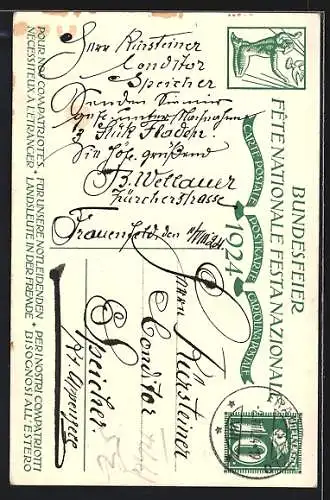 BUNDESFEIER
FÊTE NATIONALE FESTA NAZIONALE
CARTE POSTALE POSTKARTE CARTOLINA POSTALE
1924
Herr Kürsteiner
Conditor
Speicher
Senden Sie mir
gefl. unter Nachnahme
3 Stük Fladen.
Sie höfl. grüßend
B. Wellauer
Zürcherstrasse
Frauenfeld, den
Herrn Kürsteiner
Conditor
Speicher
Kt. Appenzell
POUR NOS COMPATRIOTES NÉCESSITEUX A L'ÉTRANGER
FÜR UNSERE NOTLEIDENDEN LANDSLEUTE IN DER FREMDE
PER I NOSTRI COMPATRIOTTI BISOGNOSI ALL'ESTERO
HELVETIA
10